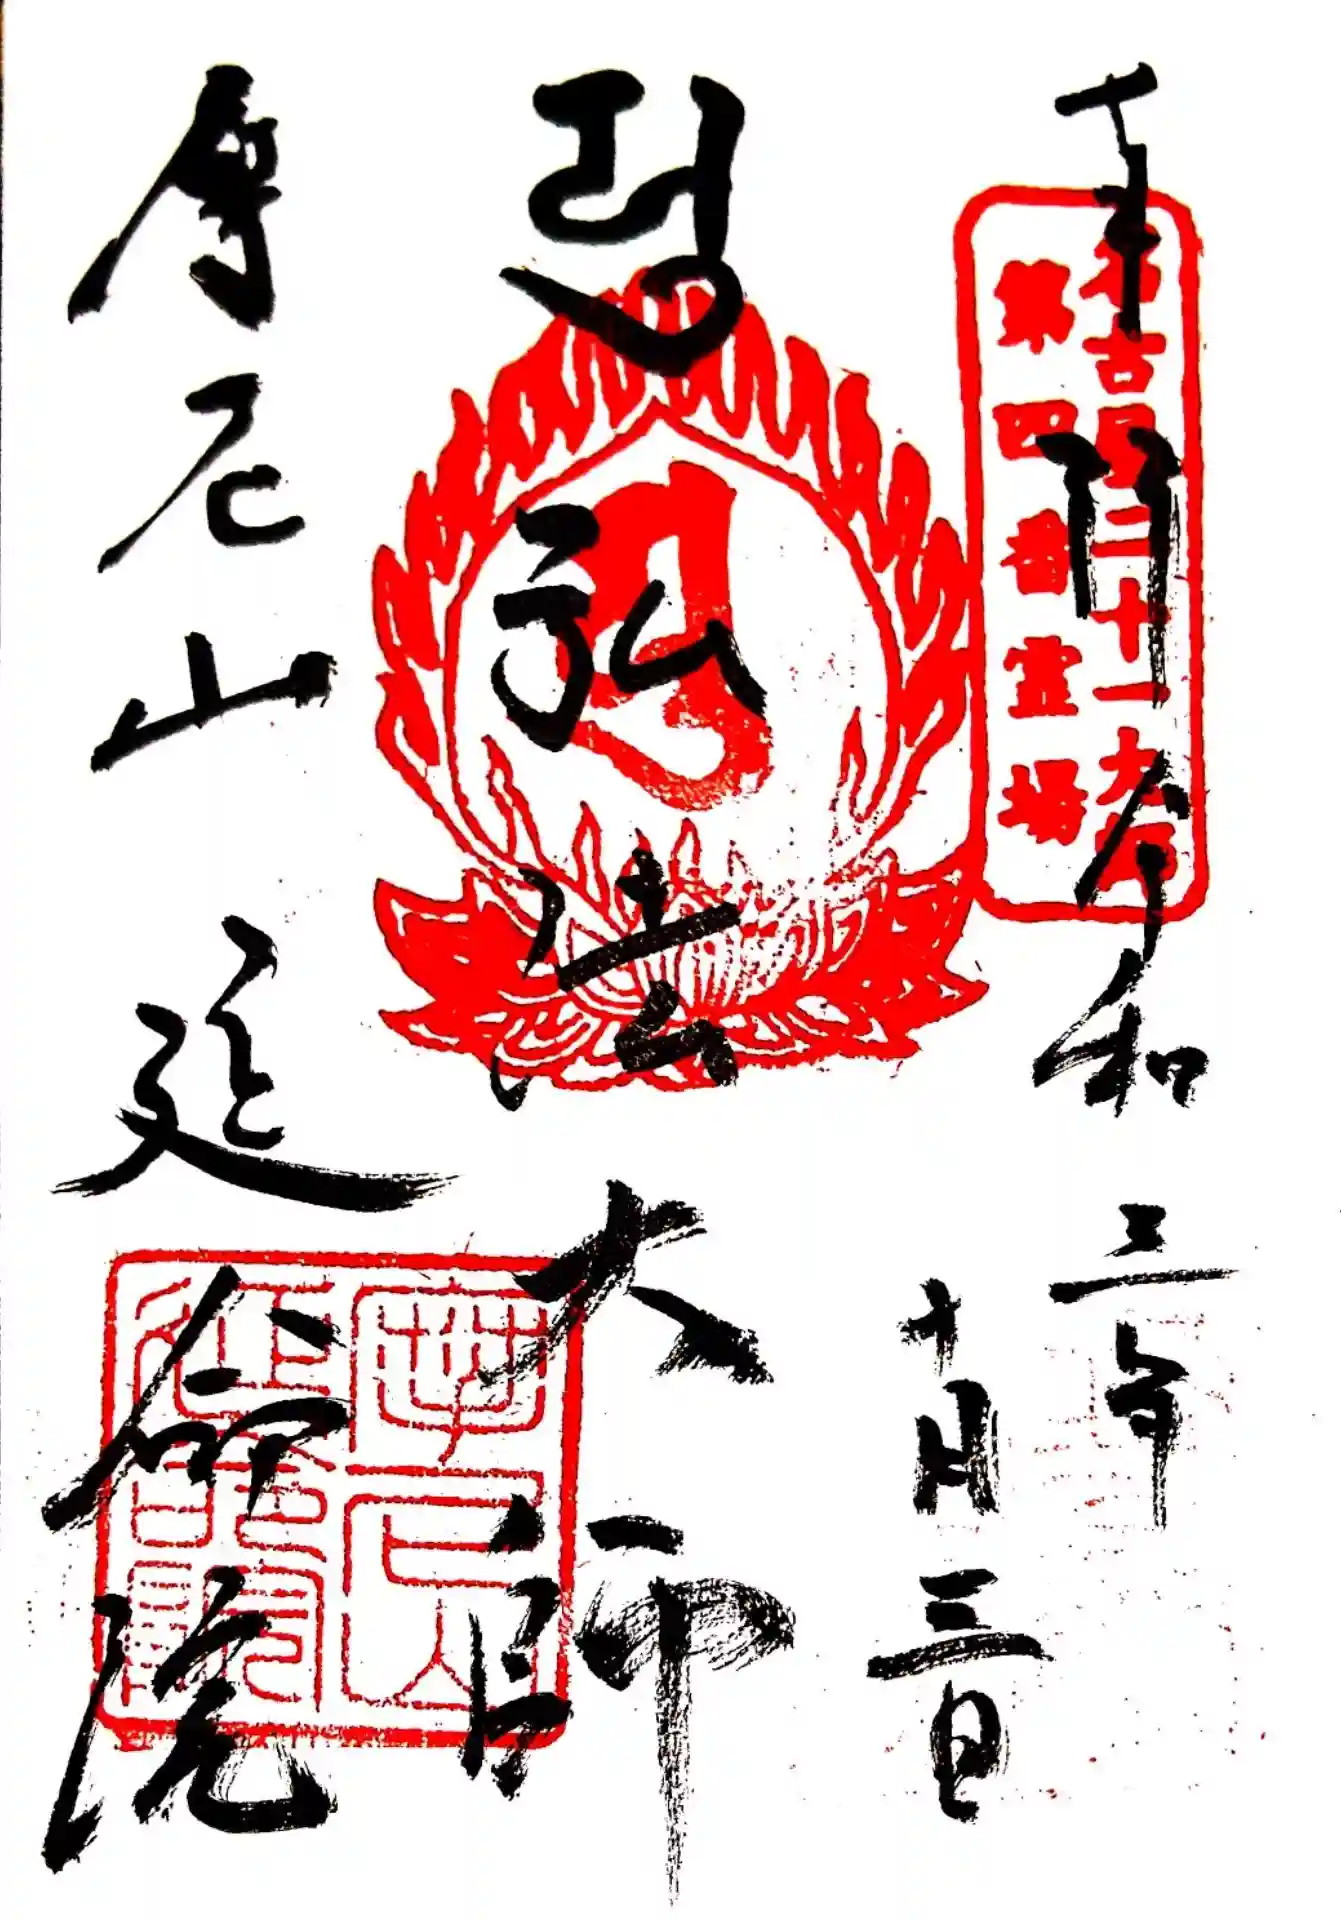 奉拝 令和三年
十月三日
名古屋二十一大師
第四番霊場
弘法大師
摩尼山 延命院
摩尼山
延命院